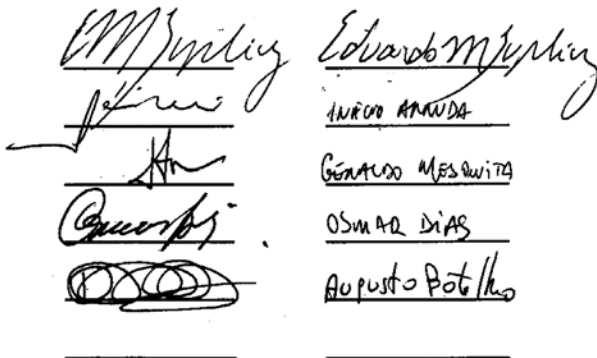 EMSuplicy Eduardo M Suplicy
INÁCIO ARRUDA
GERALDO MESQUITA
OSMAR DIAS
Augusto Botelho